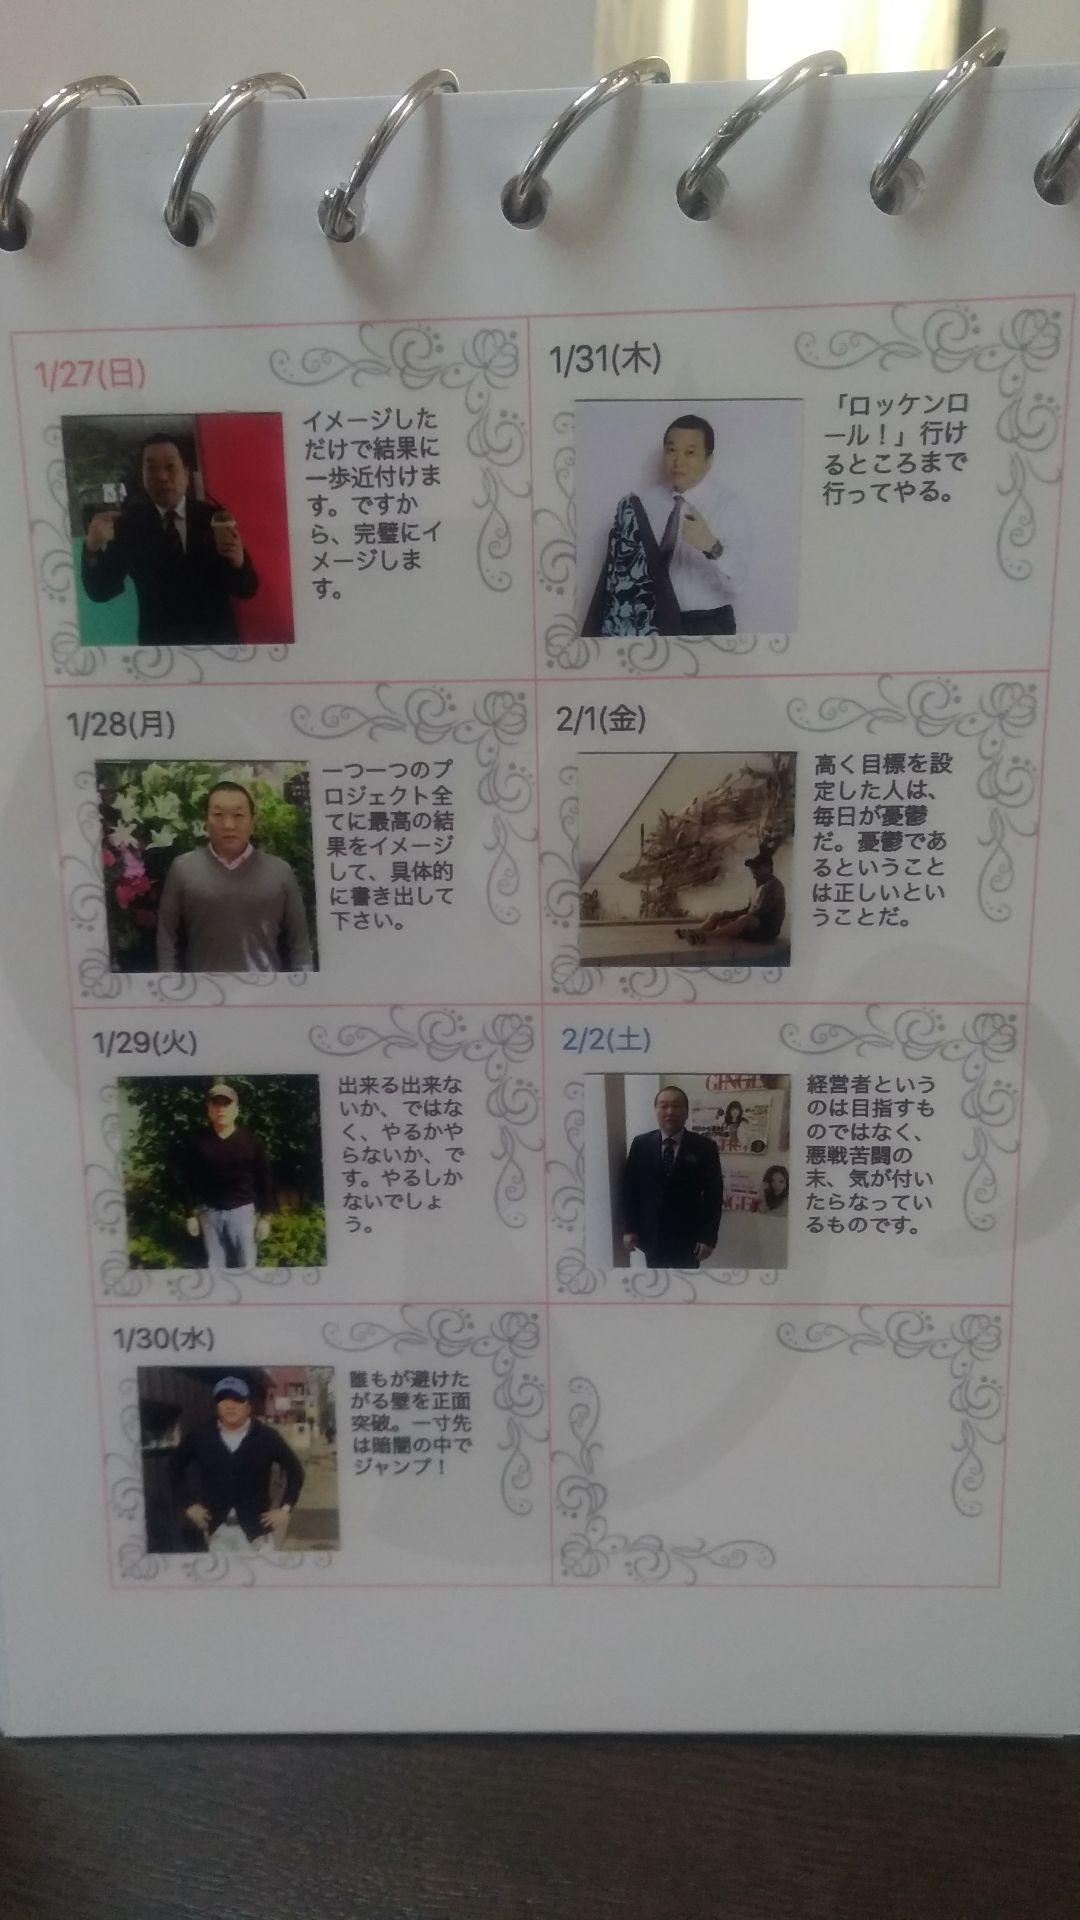 1/27(日)
イメージした
だけで結果に
一歩近付けま
す。ですか
ら、完璧にイ
メージしま
す。
1/28(月)
一つ一つのプ
ロジェクト全
てに最高の結
果をイメージ
して、具体的
に書き出して
下さい。
1/29(火)
出来る出来な
いか、ではな
く、やるかや
らないか、で
す。やるしか
ないでしょ
う。
1/30(水)
誰もが避けた
がる壁を正面
突破。一寸先
は暗闇の中で
ジャンプ！
1/31(木)
「ロッケンロ
ール！」行け
るところまで
行ってやる。
2/1(金)
高く目標を設
定した人は、
毎日が憂鬱
だ。憂鬱であ
るということ
は正しいとい
うことだ。
2/2(土)
経営者という
のは目指すも
のではなく、
悪戦苦闘の
末、気が付い
たらなってい
るものです。
GINGER